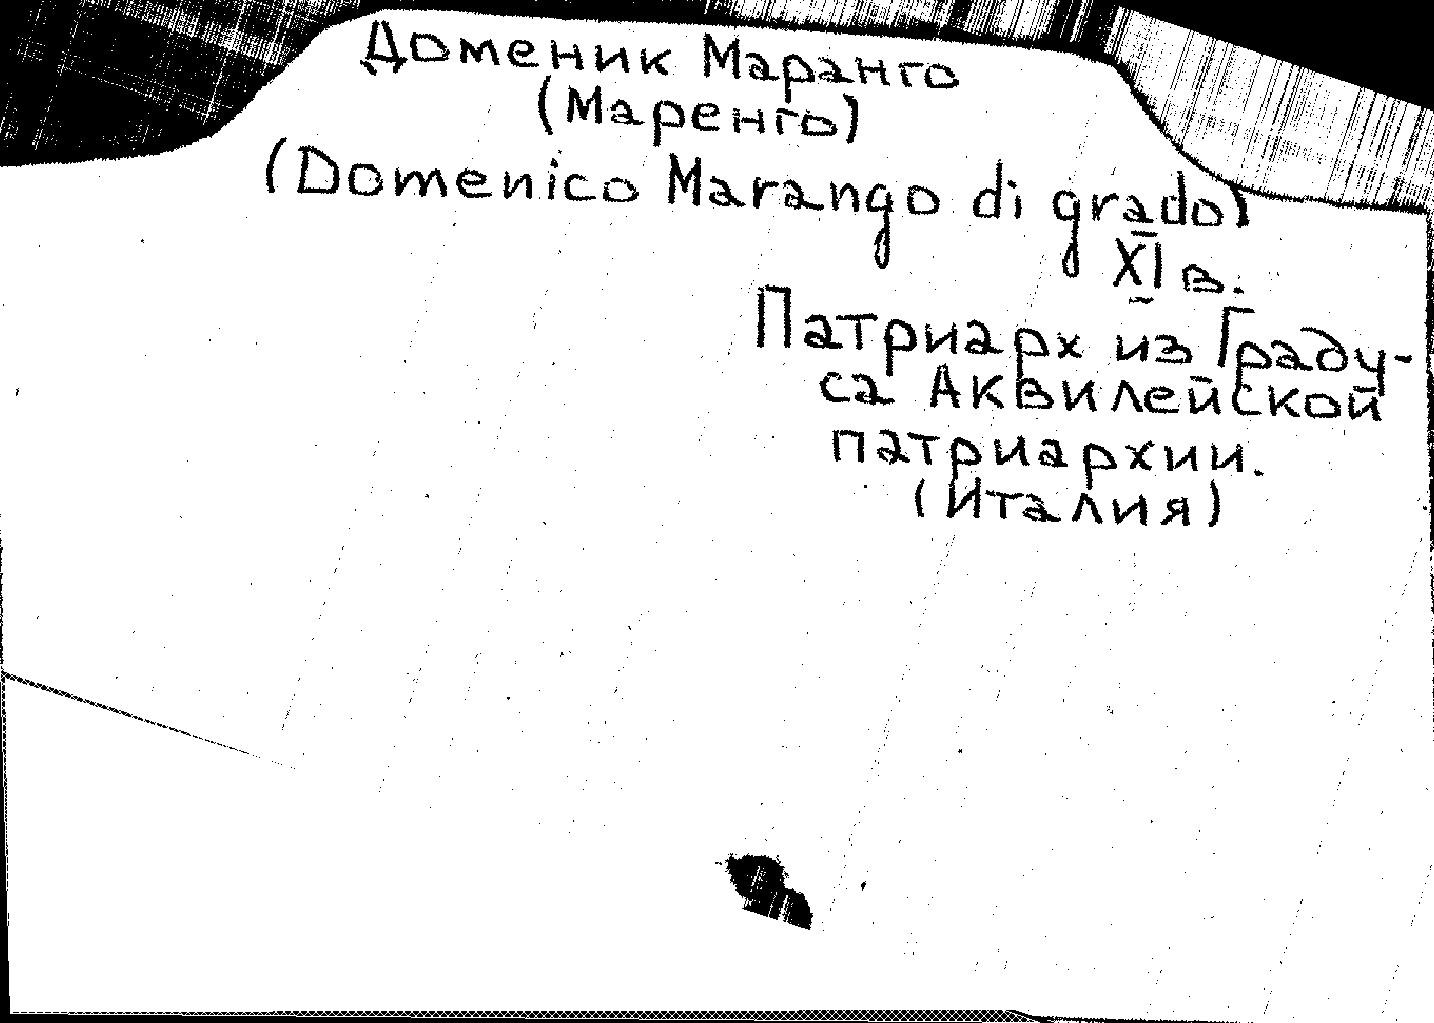 Доменик Маранго
(Маренго)
(Domenico Marango di grado)
XI в.
Патриарх из Граду-
са Аквилейской
патриархии.
(Италия)